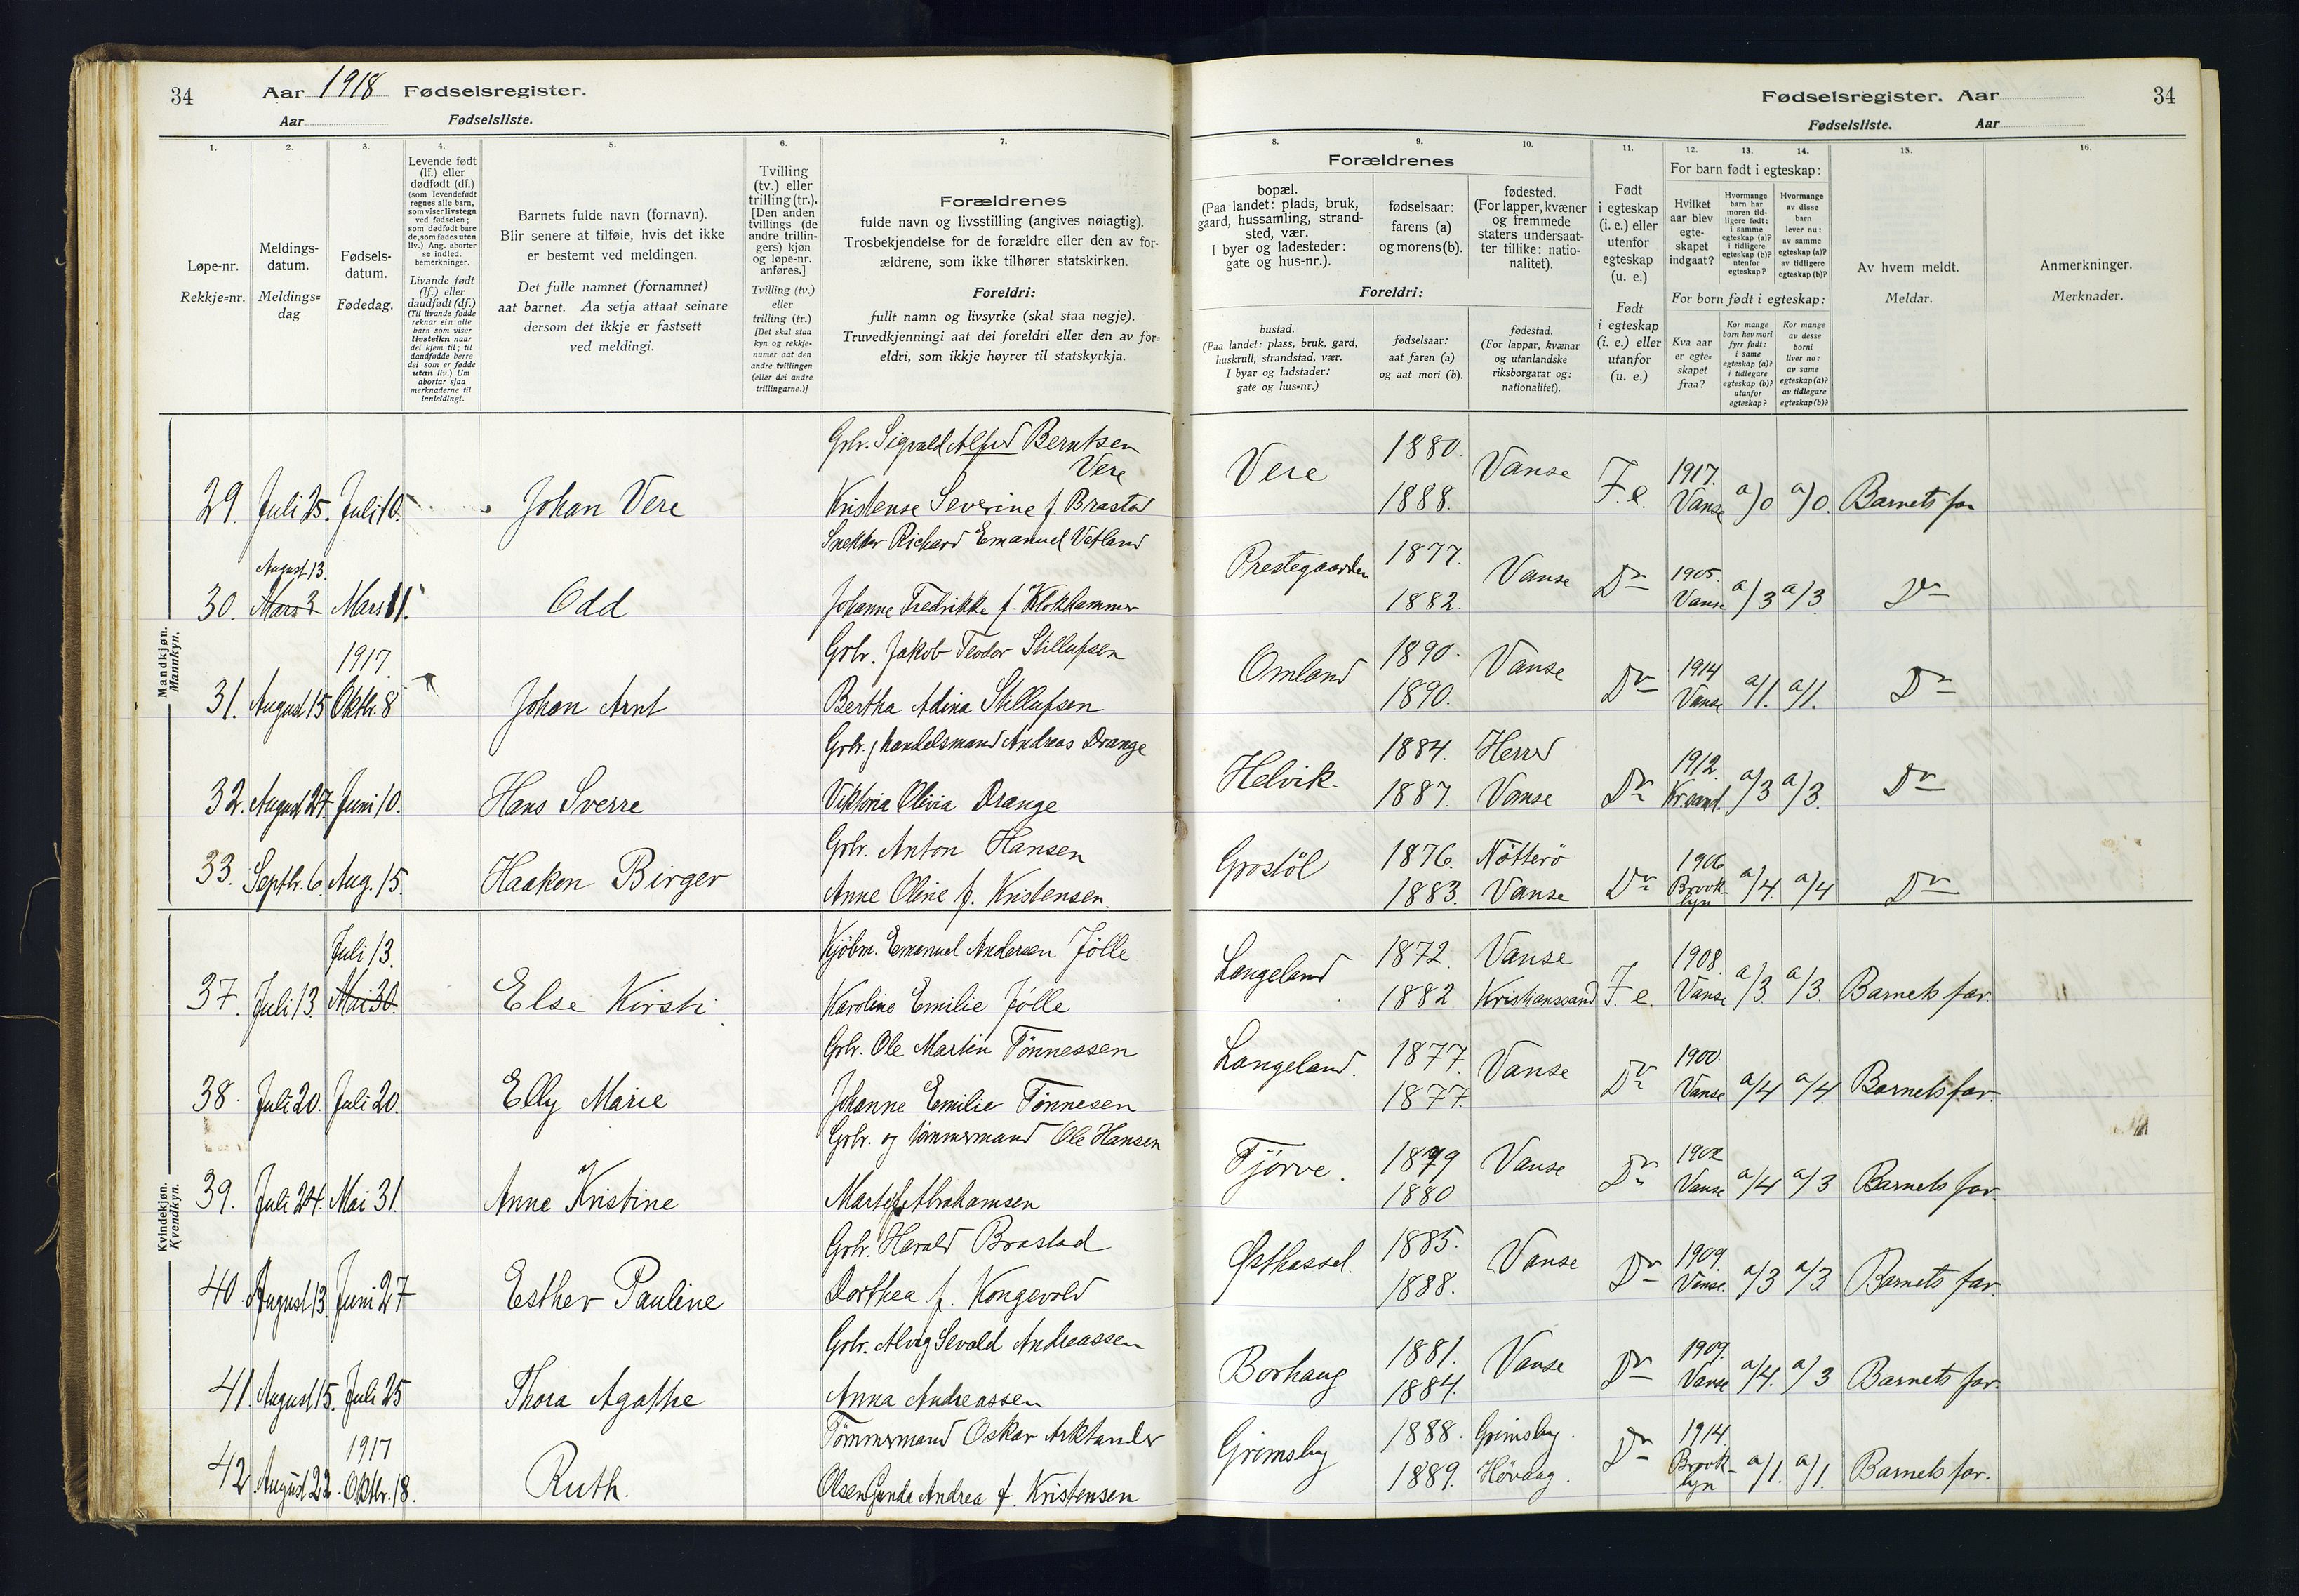 34 Aar 1918 Fødselsregister.
Aar Fødselsliste.
1. 2. 3. 4. 5. 6. 7.
Løpe-nr.
Rekkje=nr.
Meldings-
datum.
Meldings=
dag
Fødsels-
datum.
Fødedag.
Levende født
(lf.) eller
dødfødt (df.)
(som levendefødt
regnes alle barn,
som viser livstegn
ved fødselen;
som dødfødt bare
de, som fødes uten
liv.) Ang. aborter
se indled.
bemerkninger.
Livande født
(lf.) eller
daudfødt (df.)
(Til livande fødde
reknar ein alle
barn som viser
livsteikn naar
dei kjem til; til
daudfødde berre
dei som er fødde
utan liv.) Um
abortar sjaa
merknaderne til
innleidingi.
Barnets fulde navn (fornavn).
Blir senere at tilføie, hvis det ikke
er bestemt ved meldingen.
Det fulle namnet (fornamnet)
aat barnet. Aa setja attaat seinare
dersom det ikkje er fastsett
ved meldingi.
Tvilling
(tv.) eller
trilling (tr.).
[Den anden
tvillings (de
andre trillin-
gers) kjøn
og løpe-nr.
anføres.]
Tvilling (tv.)
eller
trilling (tr.)
[Det skal staa
kyn og rekkje-
numer aat den
andre tvillingen
(eller dei andre
trillingarne.)]
Forældrenes
fulde navn og livsstilling (angives nøiagtig).
Trosbekjendelse for de forældre eller den av for-
ældrene, som ikke tilhører statskirken.
Foreldri:
fullt namn og livsyrke (skal staa nøgje).
Truvedkjenningi aat dei foreldri eller den av for=
eldri, som ikkje høyrer til statskyrkja.
Mandkjøn.
Mannkyn.
Grbr. Sigvald Alfred Berntsen
Vere
29. Juli 25. Juli 10. Johan Vere Kristense Severine f. Brastad
Snekker Richard Emanuel Vetland
August 13.
30. Mars 2 Mars 11. Odd Johanne Fredrikke f. Klokhammer
Grbr. Jakob Teodor Stillufsen
1917.
31. August 15 Oktbr. 8 Johan Arnt Bertha Adina Stillufsen
Grbr. j handelsmand Andreas Drange
32. August 27. Juni 10. Hans Sverre Viktoria Olivia Drange
Grbr. Anton Hansen
33. Septbr. 6. Aug. 15. Haakon Birger Anne Oline f. Kristensen.
Kvindekjøn.
Kvendkyn.
Juli 13. Kjöbm. Emanuel Andersen Jölle
37. Juli 13. Mai 30. Else Kirsti Karoline Emilie Jölle
Grbr. Ole Martin Tönnessen
38. Juli 20. Juli 20. Elly Marie Johanne Emilie Tönnesen
Grbr. og tömmermand Ole Hansen
39. Juli 24. Mai 31. Anne Kristine Marte f. Abrahamsen
Grbr. Harald Brastad
40. August 13 Juni 27 Esther Pauline Dorthea f. Kongevold
Grbr. Alvig Sevald Andreassen
41. August 15. Juli 25 Thora Agathe Anna Andreassen
1917 Tömmermand Oskar Arktander
42. August 22. Oktbr. 18. Ruth. Olsen Gunda Andrea f. Kristensen
Fødselsregister. Aar 34
Fødselsliste. Aar
8. 9. 10. 11. 12. 13. 14. 15. 16.
Forældrenes
bopæl.
(Paa landet: plads, bruk,
gaard, hussamling, strand-
sted, vær.
I byer og ladesteder:
gate og hus-nr.).
fødselsaar:
farens (a)
og morens (b).
fødested.
(For lapper, kvæner
og fremmede
staters undersaat-
ter tillike: natio-
nalitet).
Foreldri:
bustad.
(Paa landet: plass, bruk, gard,
huskrull, strandstad, vær.
I byar og ladstader:
gate og hus=nr.)
fødselsaar:
aat faren (a)
og aat mori (b).
fødestad.
(For lappar, kvænar
og utanlandske
riksborgarar og:
nationalitet).
Født
i egteskap
(i. e.) eller
utenfor
egteskap
(u. e.)
Født
i egteskap
(i. e.) eller
utanfor
(u. e.)
For barn født i egteskap:
Hvilket
aar blev
egte-
skapet
indgaat?
Hvormange
barn har
moren tid-
ligere født:
i samme
egteskap (a)?
i tidligere
egteskap (b)?
utenfor
egteskap?
Hvormange
av disse
barn
lever nu:
av samme
egteskap (a)?
av tidligere
egteskap (b)?
For born født i egteskap:
Kva aar
er egte=
skapet
fraa?
Kor mange
born hev mori
fyrr født:
i same
egteskap (a)?
i tidlegare
egteskap (b)?
utanfor
egteskap?
Kor mange
av desse
borni
liver no:
av same
egteskap (a)?
av tidlegare
egteskap (b)?
Av hvem meldt.
Meldar.
Anmerkninger.
Merknader.
Vere 1880. Vanse F. e. 1917. a/0 a/0. Barnets far
1888. Vanse
Prestegaarden 1877. Vanse Do 1905. a/3 a/3 Do
1882. Vanse
Omland 1890. Vanse Do 1914 a/1. a/1. Do
1890. Vanse
Helvik 1884. Herred Do 1912. a/3 a/3. Do
1887. Vanse Kr.sand.
Grostöl 1876. Nötterö Do 1906 a/4. a/4 Do
1883. Vanse Brook-
lyn
Langeland 1872. Vanse F. e. 1908. a/3 a/3. Barnets far.
1882 Kristianssand Vanse
Langeland. 1877. Vanse Do 1900. a/4 a/4. Barnets far.
1877. Vanse
Tjörve. 1879 Vanse Do 1902 a/4 a/3 Barnets far.
1880 Vanse
Østhassel. 1885. Vanse Do 1909. a/3 a/3 Barnets far.
1888. Vanse.
Borhaug 1881. Vanse Do 1909. a/4. a/3 Barnets far.
1884. Vanse
Grimsby 1888. Grimsby. Do 1914. a/1. a/1. Barnets far.
1889. Hövaag. Brook-
lyn